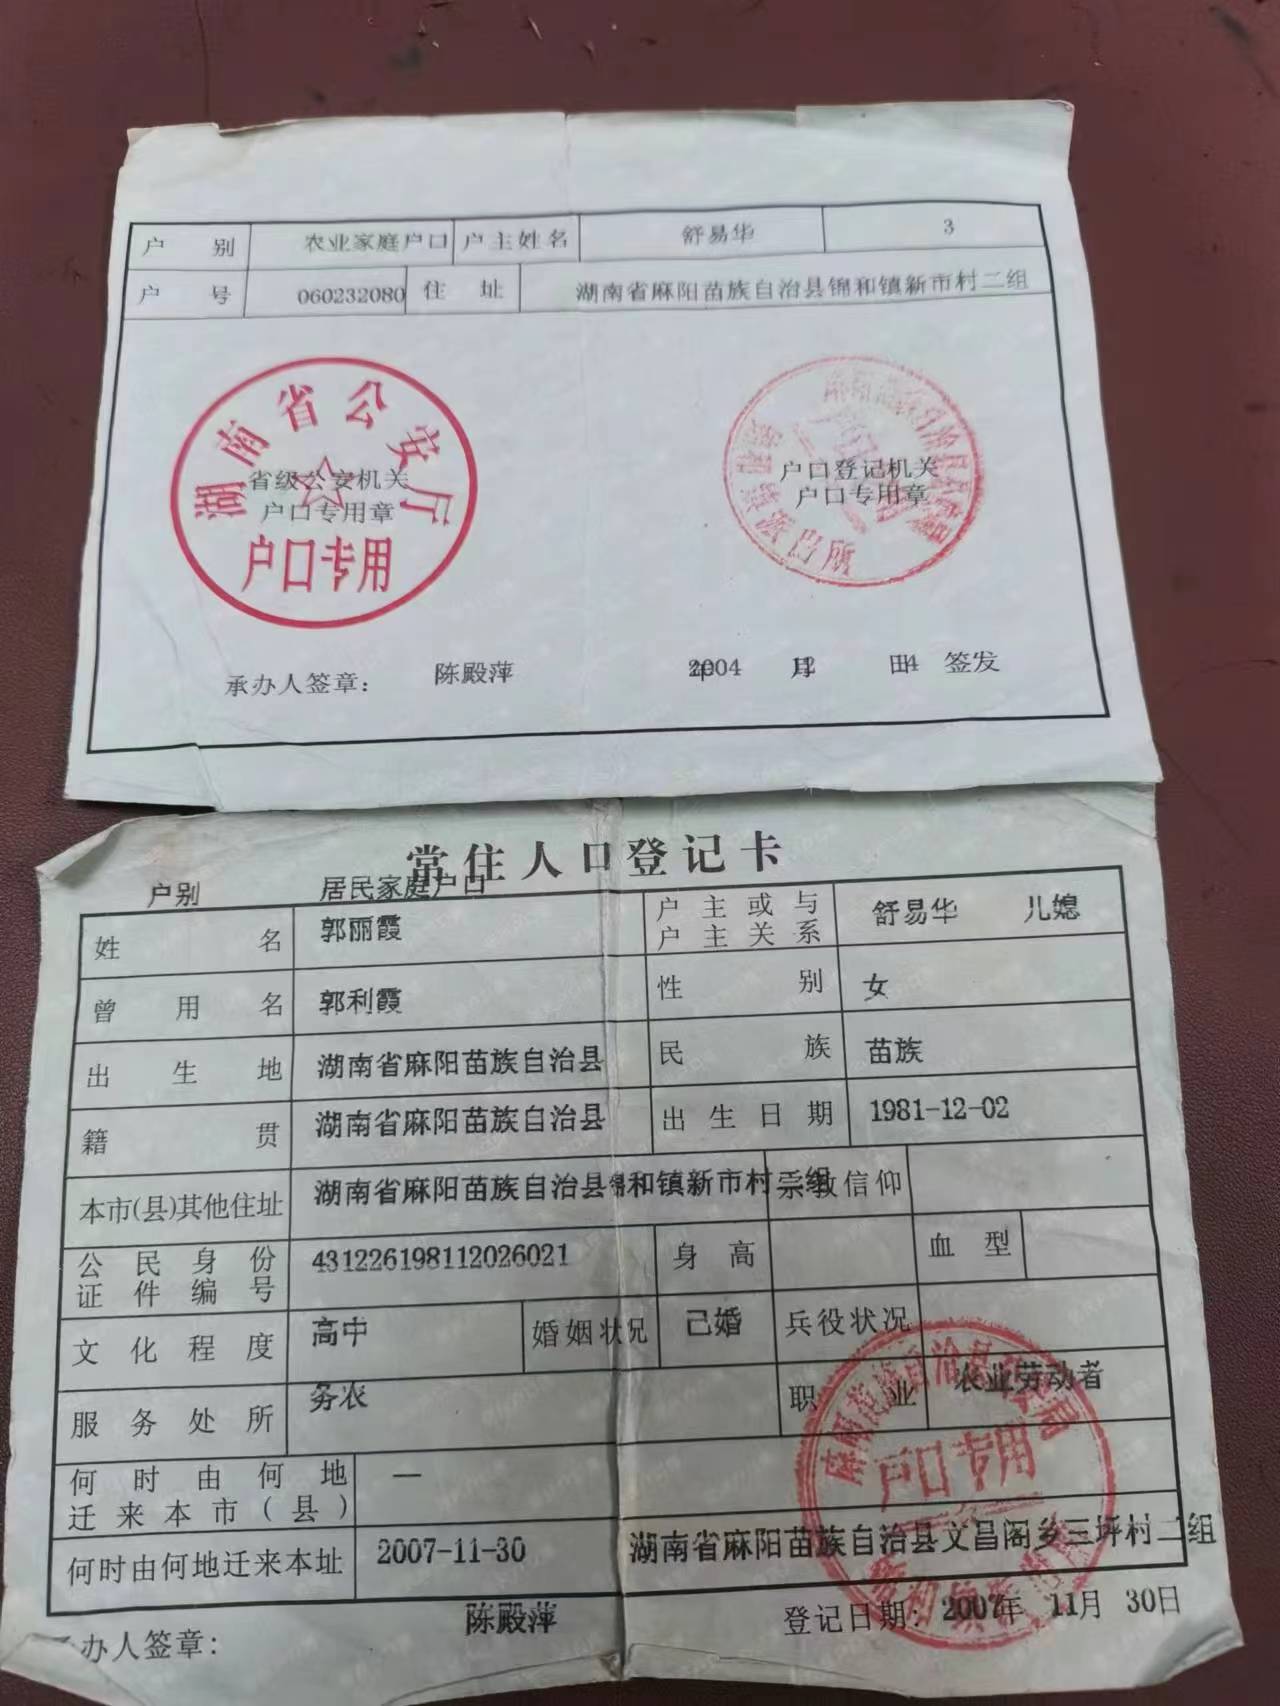 户别 农业家庭户口 户主姓名 舒易华 3
户号 060232080 住址 湖南省麻阳苗族自治县锦和镇新市村二组
湖南省公安厅
省级公安机关
户口专用章
户口专用
户口登记机关
户口专用章
派出所
承办人签章： 陈殿萍 2004年 12月 日 签发
常住人口登记卡
户别 居民家庭户口
姓名 郭丽霞 户主或与户主关系 舒易华 儿媳
曾用名 郭利霞 性别 女
出生地 湖南省麻阳苗族自治县 民族 苗族
籍贯 湖南省麻阳苗族自治县 出生日期 1981-12-02
本市(县)其他住址 湖南省麻阳苗族自治县锦和镇新市村二组 宗教信仰
公民身份证件编号 431226198112026021 身高 血型
文化程度 高中 婚姻状况 已婚 兵役状况
服务处所 务农 职业 农业劳动者
何时由何地迁来本市(县) —
何时由何地迁来本址 2007-11-30 湖南省麻阳苗族自治县文昌阁乡三坪村二组
户口专用
承办人签章： 陈殿萍 登记日期：2007年 11月 30日